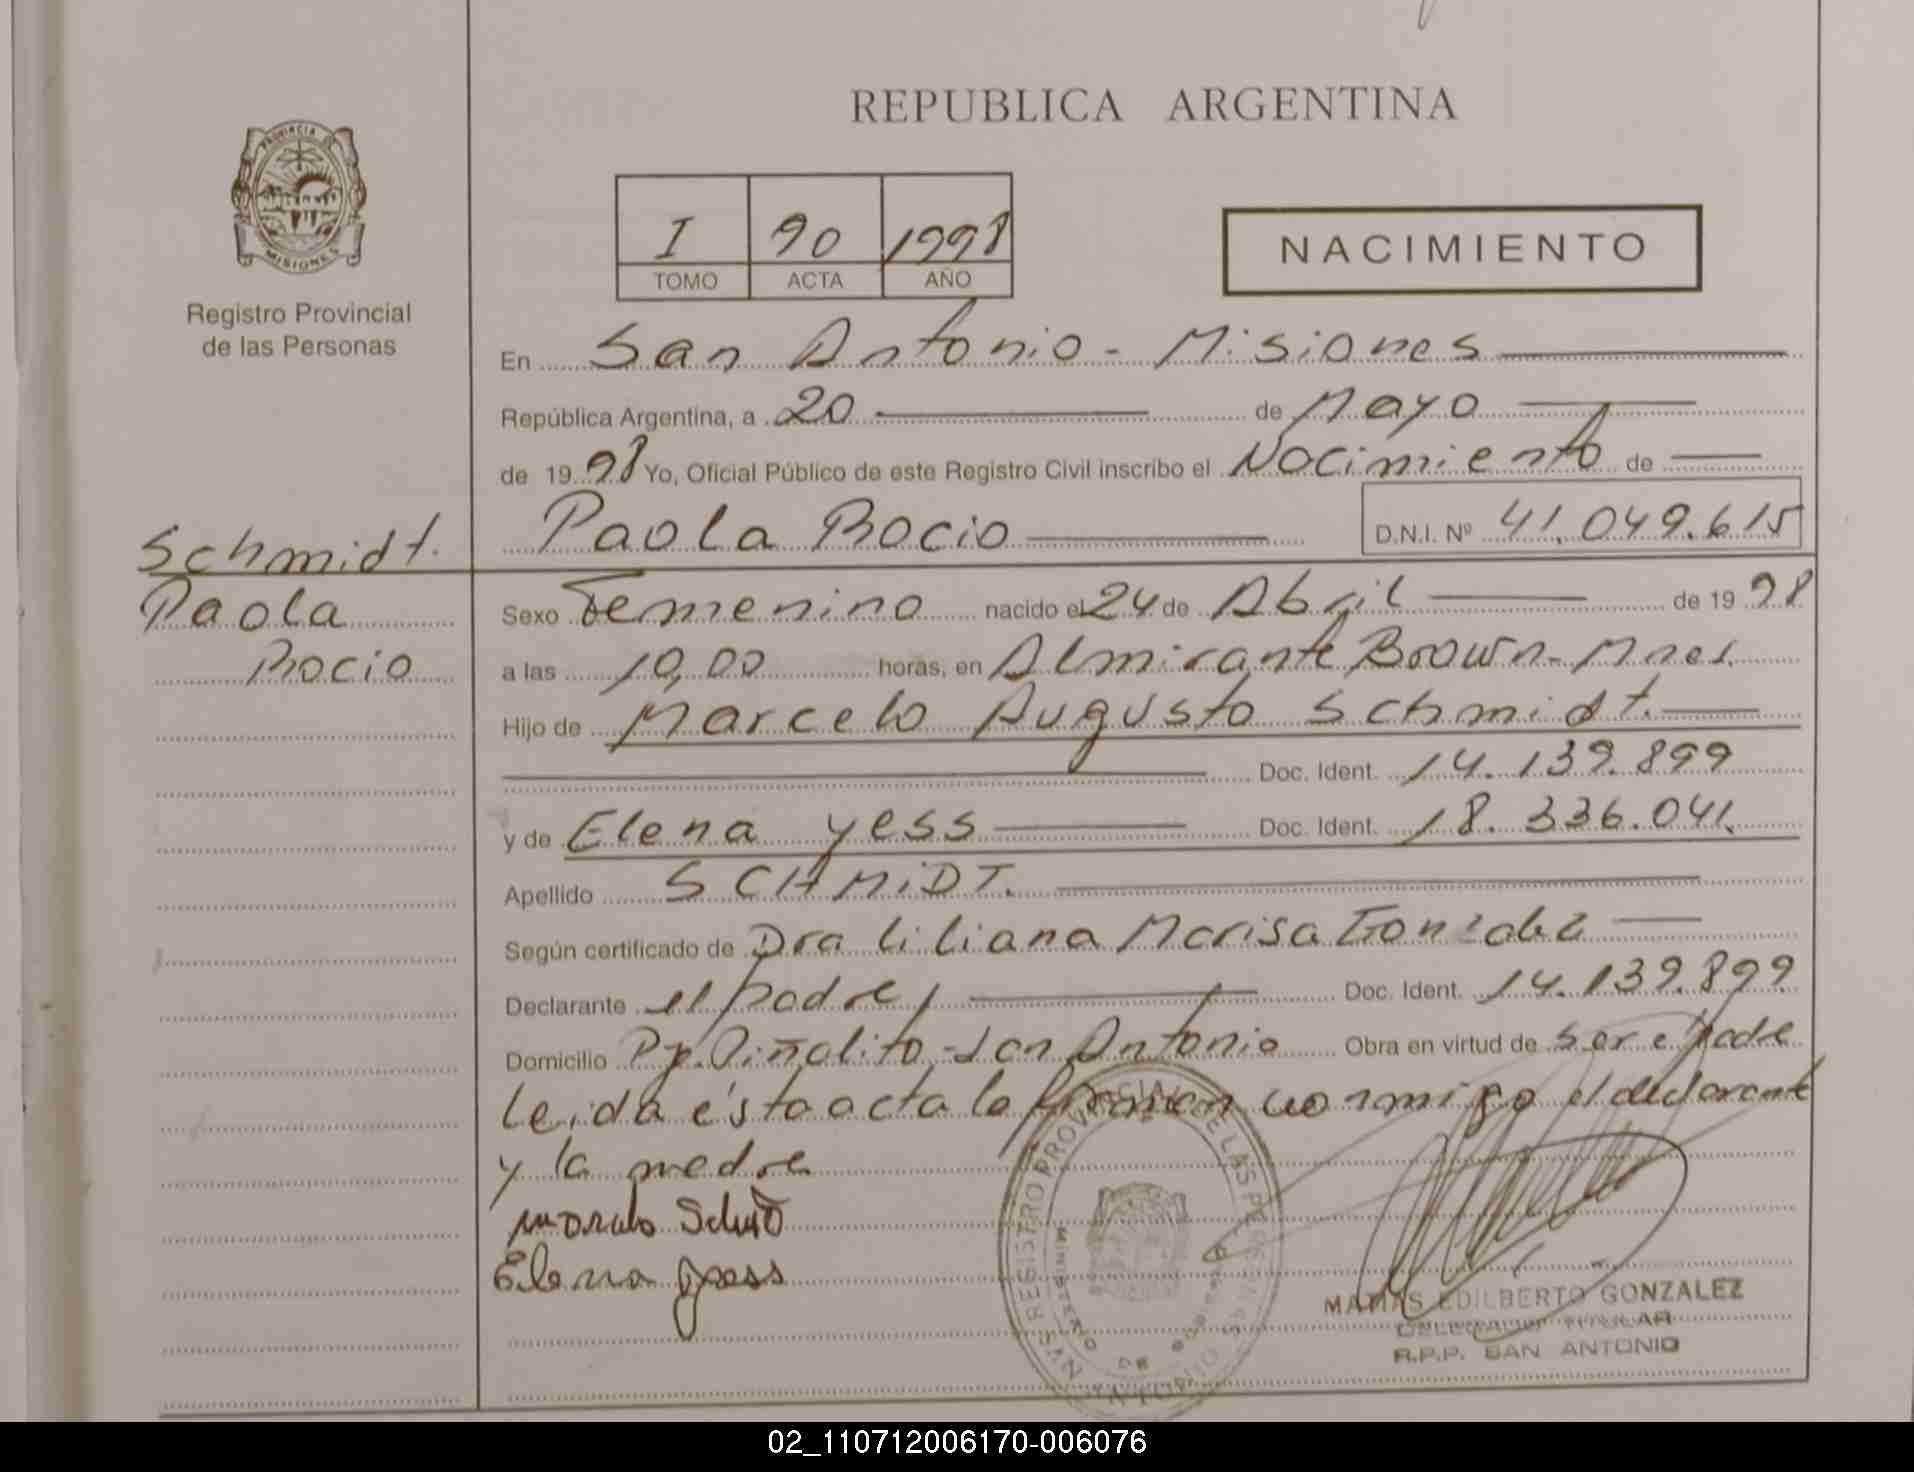 REPUBLICA ARGENTINA
PROVINCIA DE
MISIONES
Registro Provincial
de las Personas
I 90 1998
TOMO ACTA AÑO
NACIMIENTO
En San Antonio - Misiones
República Argentina, a 20 de Mayo
de 1998 Yo, Oficial Público de este Registro Civil inscribo el Nacimiento de
Paola Rocio D.N.I. Nº 41.049.615
Schmidt.
Paola
Rocio
Sexo Femenino nacido el 24 de Abril de 1998
a las 10,00 horas, en Almirante Brown - Mnes.
Hijo de Marcelo Augusto Schmidt.
Doc. Ident. 14.139.899
y de Elena yess Doc. Ident. 18.336.041.
Apellido SCHMiDT.
Según certificado de Dra liliana Marisa Gonzalez
Declarante el padre, Doc. Ident. 14.139.899
Domicilio Pje. Piñalito - San Antonio Obra en virtud de ser el padre
Leida ésta acta la firman conmigo el declarante
y la madre
Elena yess
REGISTRO PROVINCIAL DE LAS PERSONAS
MINISTERIO DE GOBIERNO
SAN ANTONIO
MATIAS EDILBERTO GONZALEZ
DELEGADO TITULAR
R.P.P. SAN ANTONIO
02_110712006170-006076